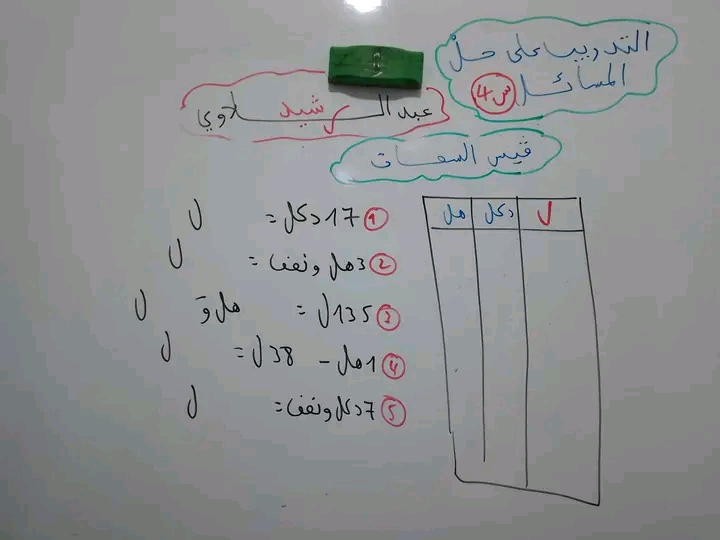 التدريب على حل
المسائل س4
عبد الرشيد لاوي
قيس السعات
هل دكل ل
① 17 دكل = ل
② 3 هل ونصف = ل
③ 135 ل = هل و ل
④ 1 هل - 38 ل = ل
⑤ 7 دكل ونصف = ل